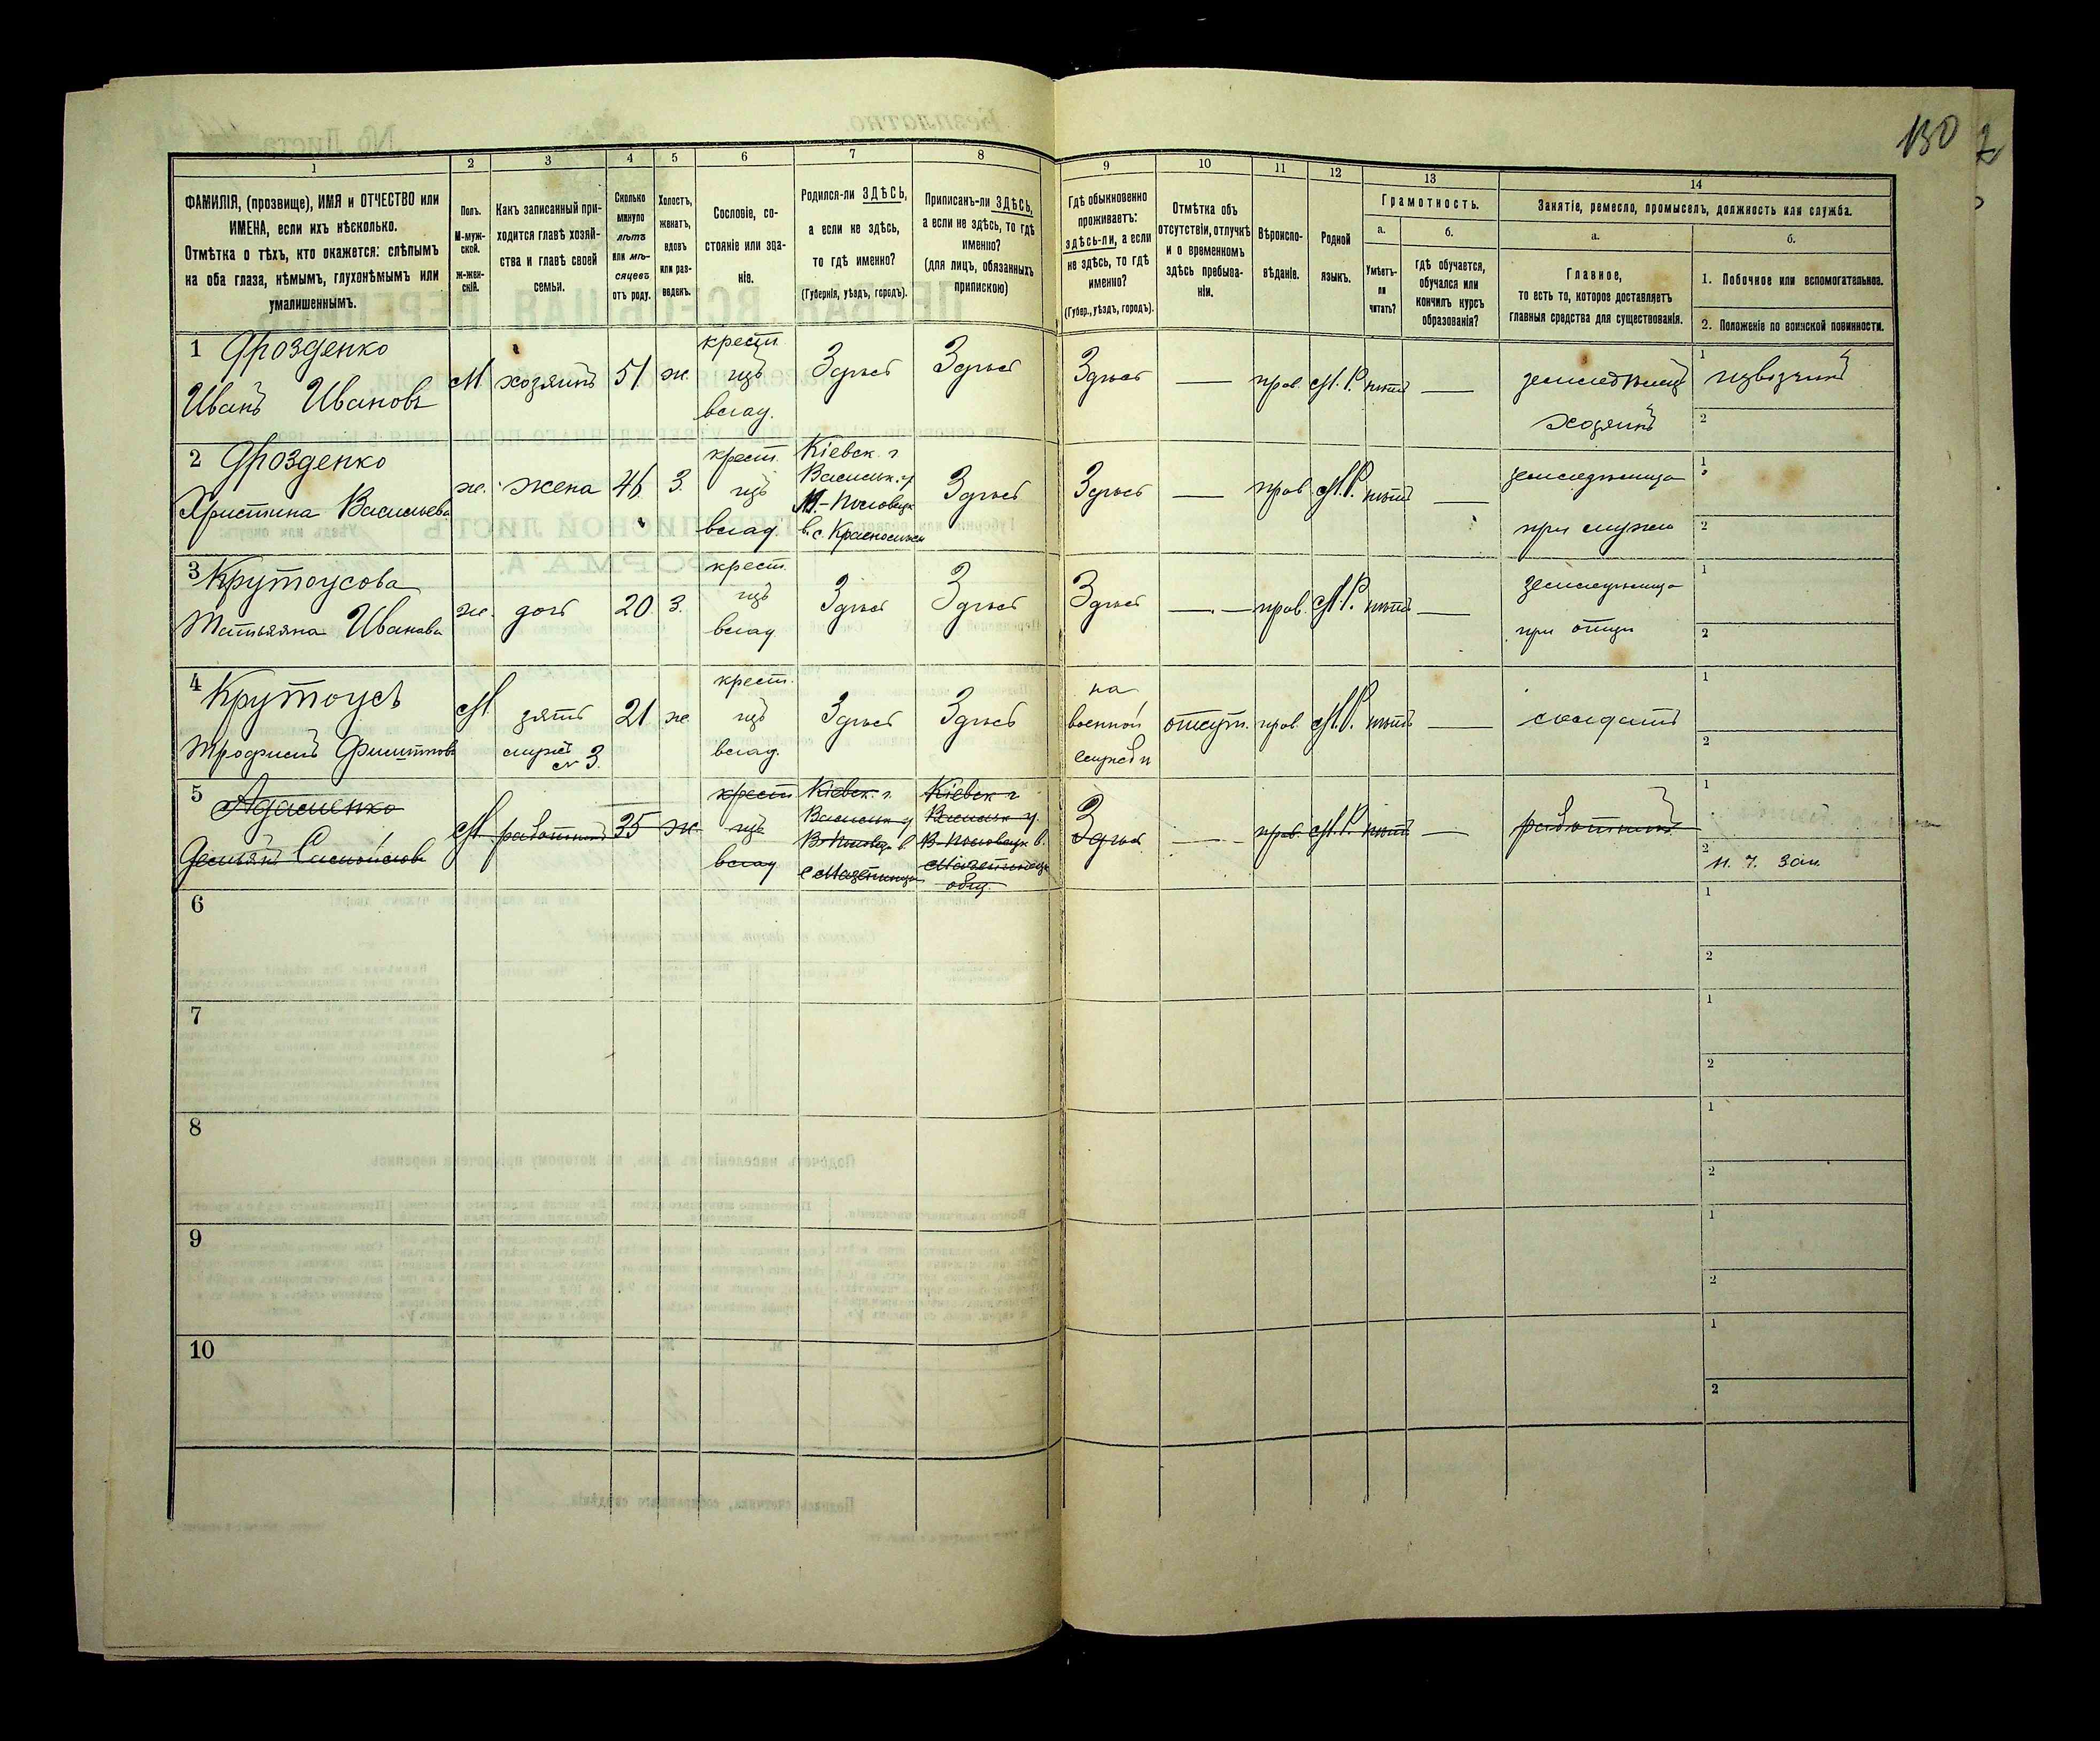 130
1
2
3
4
5
6
7
8
9
10
11
12
13
14
ФАМИЛІЯ, (прозвище), ИМЯ и ОТЧЕСТВО или
ИМЕНА, если ихъ нѣсколько.
Отмѣтка о тѣхъ, кто окажется: слѣпымъ
на оба глаза, нѣмымъ, глухонѣмымъ или
умалишеннымъ.
Полъ.
М-муж-
ской.
ж-жен-
скій.
Какъ записанный при-
ходится главѣ хозяй-
ства и главѣ своей
семьи.
Сколько
минуло
лѣтъ
или мѣ-
сяцевъ
отъ роду.
Холостъ,
женатъ,
вдовъ
или раз-
веденъ.
Сословіе, со-
стояніе или зва-
ніе.
Родился-ли ЗДѢСЬ,
а если не здѣсь,
то гдѣ именно?
(Губернія, уѣздъ, городъ).
Приписанъ-ли ЗДѢСЬ,
а если не здѣсь, то гдѣ
именно?
(для лицъ, обязанныхъ
припискою)
Гдѣ обыкновенно
проживаетъ:
здѣсь-ли, а если
не здѣсь, то гдѣ
именно?
(Губер., уѣздъ, городъ).
Отмѣтка объ
отсутствіи, отлучкѣ
и о временномъ
здѣсь пребыва-
ніи.
Вѣроиспо-
вѣданіе.
Родной
языкъ.
Грамотность.
а.
Умѣетъ-
ли
читать?
б.
гдѣ обучается,
обучался или
кончилъ курсъ
образованія?
Занятіе, ремесло, промыселъ, должность или служба.
а.
Главное,
то есть то, которое доставляетъ
главныя средства для существованія.
б.
1. Побочное или вспомогательное.
2. Положеніе по воинской повинности.
1 Дрозденко
Иванъ Ивановъ
М
хозяинъ
51
ж.
крест.
изъ
влад.
Здѣсь
Здѣсь
Здѣсь
—
прав.
М.Р.
нѣтъ
—
земледѣлецъ
хозяинъ
1 извозчикъ
2
2 Дрозденко
Христина Васильева
ж.
жена
46
З.
крест.
изъ
влад.
Кіевск. г.
Васильк. у
М.-Половецк
в. с. Красноселка
Здѣсь
Здѣсь
—
прав.
М.Р.
нѣтъ
—
земледѣлица
при мужѣ
1
2
3 Крутоусова
Татьяна Иванова
ж.
дочь
20
З.
крест.
изъ
влад
Здѣсь
Здѣсь
Здѣсь
—
прав.
М.Р.
нѣтъ
—
земледѣлица
при отцѣ
1
2
4 Крутоусъ
Трофимъ Филипповъ
М
зять
мужъ
№ 3.
21
ж
крест.
изъ
влад.
Здѣсь
Здѣсь
на
военной
службѣ
отсут.
прав.
М.Р.
нѣтъ
—
солдатъ
1
2
5 Адаменко
Демьянъ Самойловъ
М.
работникъ
35
ж.
крест
изъ
влад
Кіевск. г.
Васильк у
В-Половецк в.
с Мазепинцы
Кіевск г
Васильк у.
В-Половецк в.
Мазепинецк
общ.
Здѣсь
—
прав.
М.Р.
нѣтъ
—
работникъ
1
2
н. ч. зап.
6
1
2
7
1
2
8
1
2
9
1
2
10
1
2